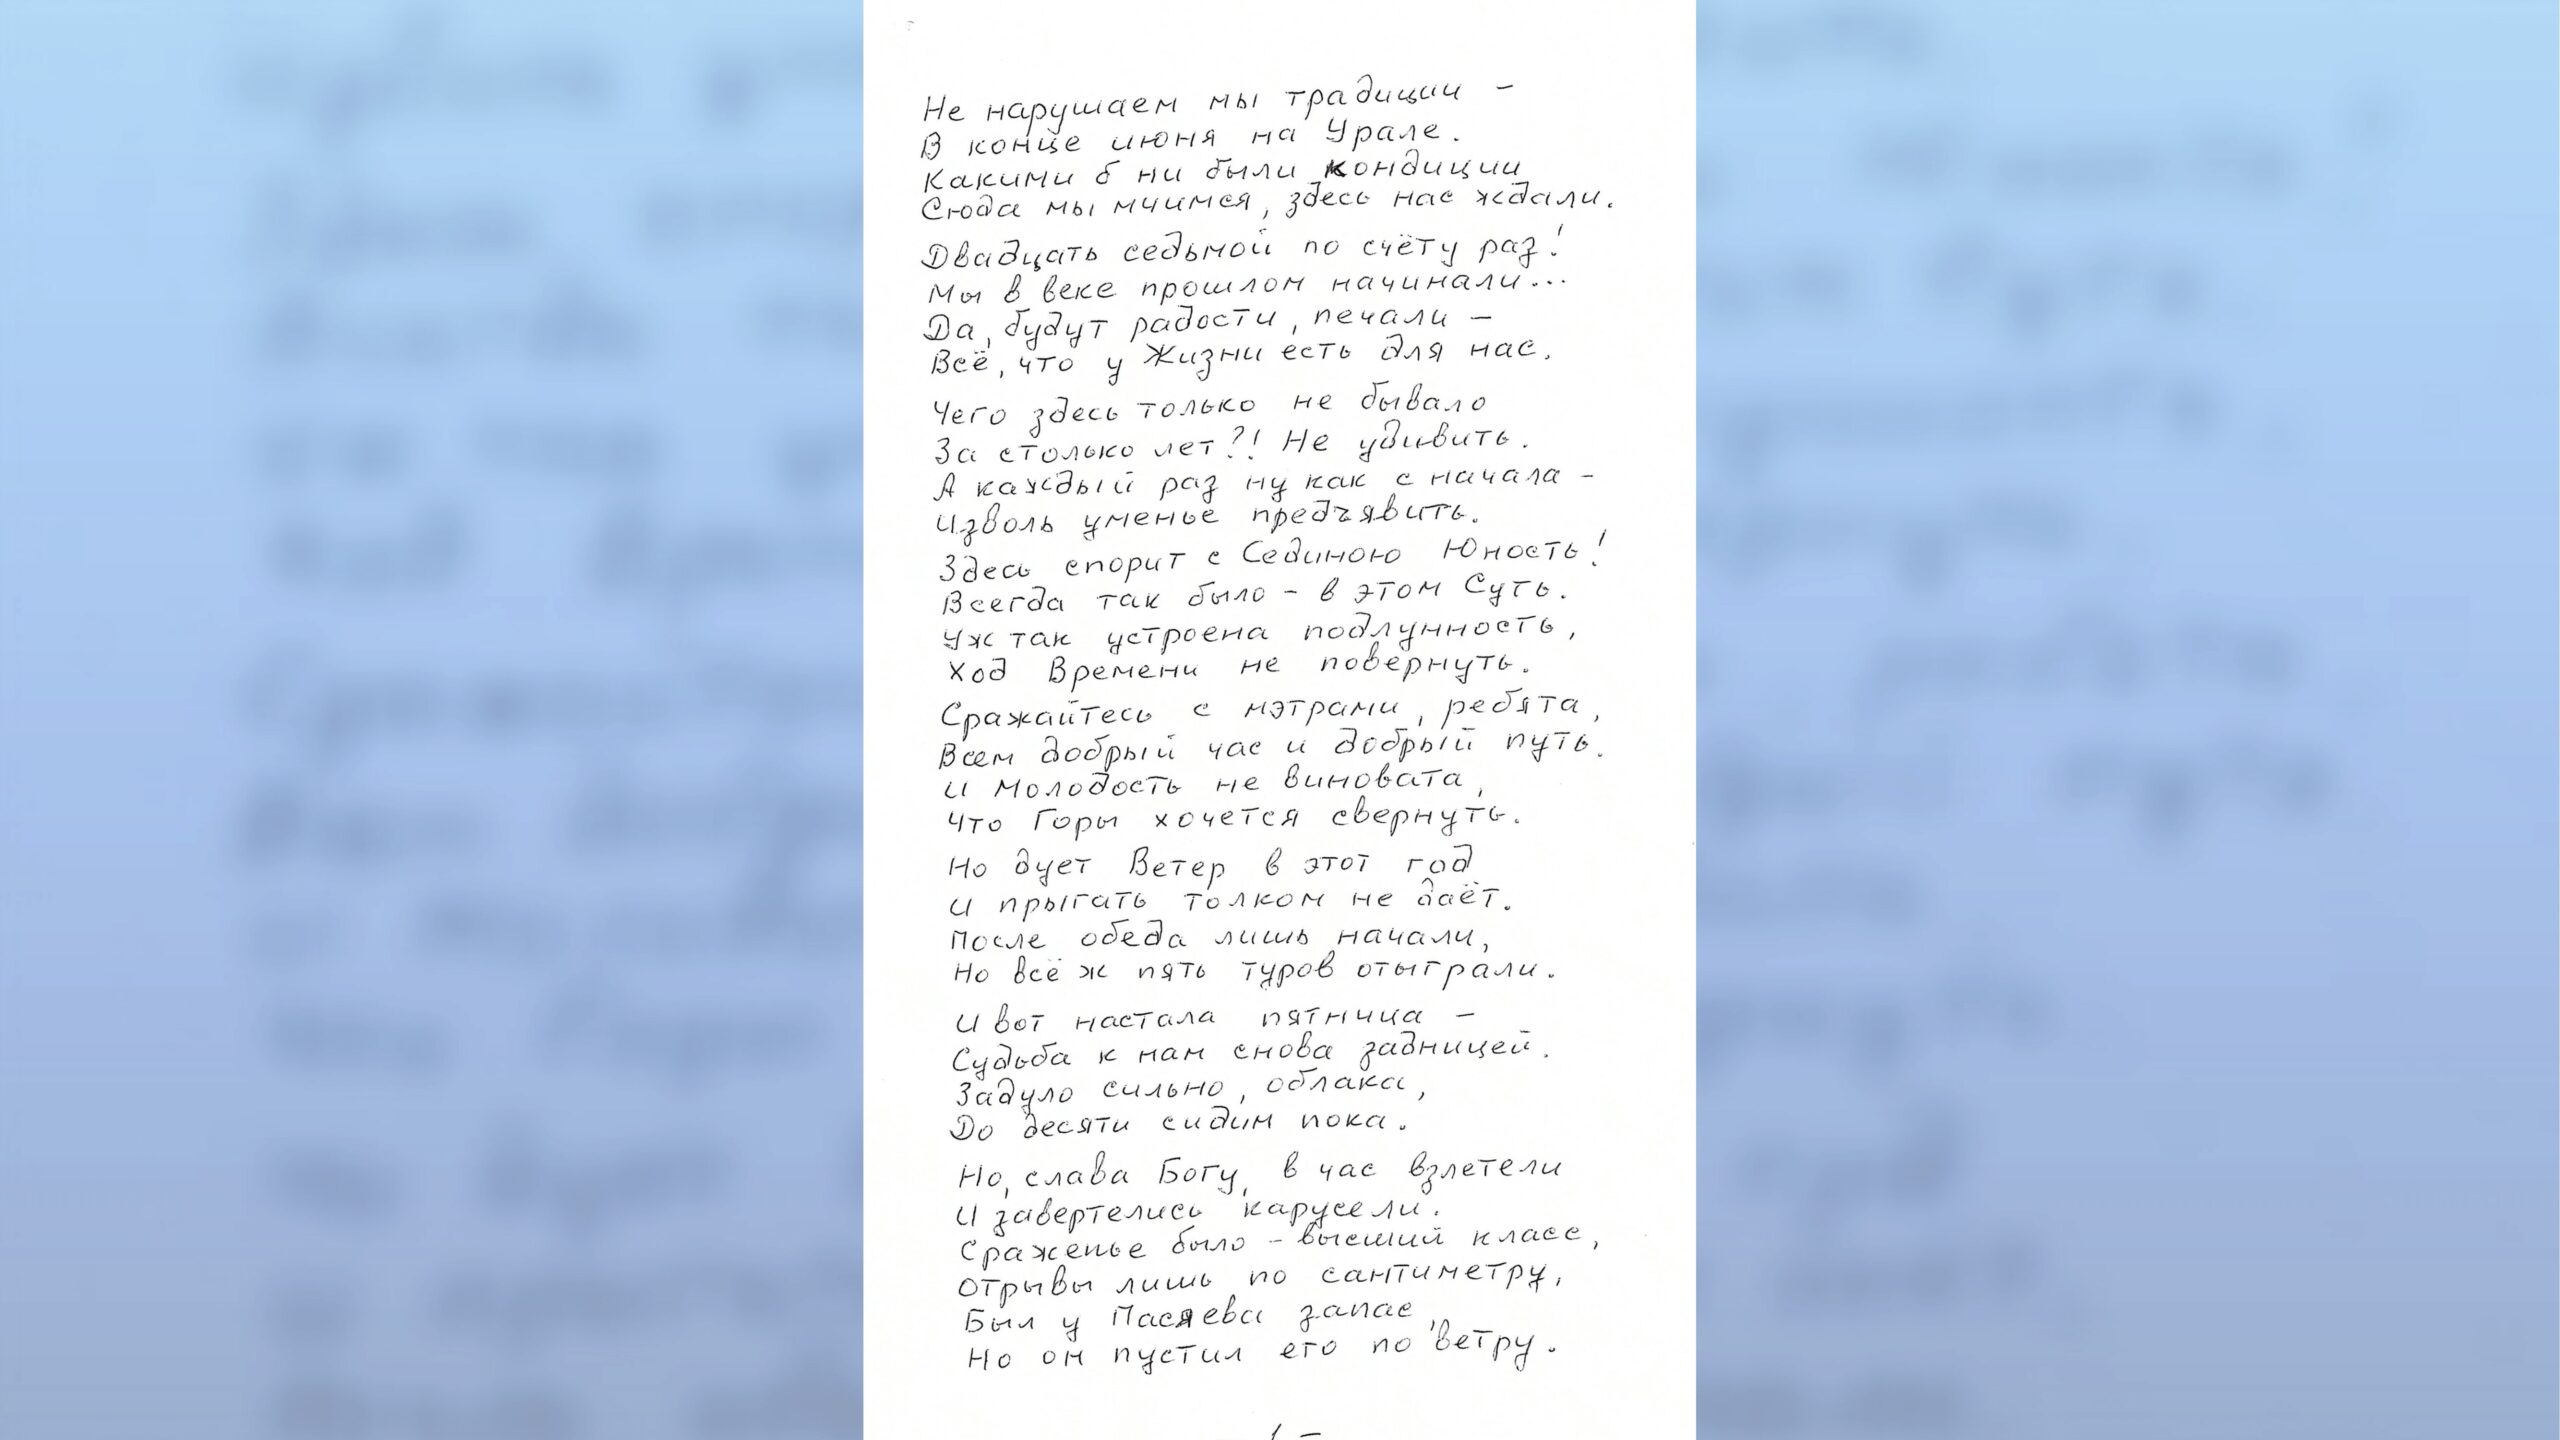 Не нарушаем мы традиции –
В конце июня на Урале.
Какими б ни были кондиции
Сюда мы мчимся, здесь нас ждали.
Двадцать седьмой по счёту раз!
Мы в веке прошлом начинали...
Да, будут радости, печали –
Всё, что у Жизни есть для нас.
Чего здесь только не бывало
За столько лет?! Не удивить.
А каждый раз ну как с начала –
Изволь уменье предъявить.
Здесь спорит с Сединою Юность!
Всегда так было – в этом Суть.
Уж так устроена подлунность,
Ход Времени не повернуть.
Сражайтесь с мэтрами, ребята,
Всем добрый час и добрый путь.
И Молодость не виновата,
Что Горы хочется свернуть.
Но дует Ветер в этот год
И прыгать толком не даёт.
После обеда лишь начали,
Но всё ж пять туров отыграли.
И вот настала пятница –
Судьба к нам снова задницей.
Задуло сильно, облака,
До десяти сидим пока.
Но, слава Богу, в час взлетели
И завертелись карусели.
Сраженье было – высший класс,
Отрывы лишь по сантиметру,
Был у Пасяева запас,
Но он пустил его по ветру.